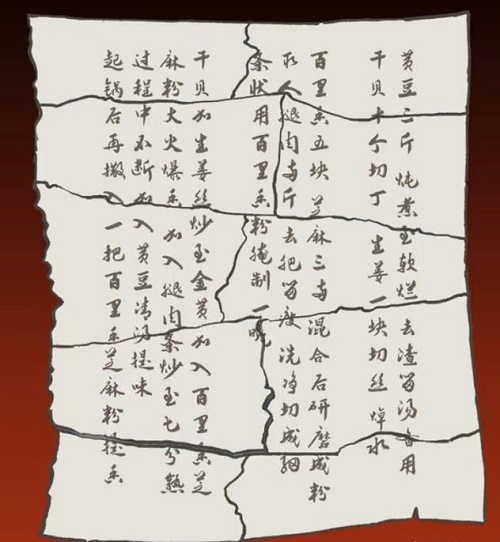 黄豆三斤 炖煮至软烂 去渣留汤备用
干贝十个切丁 生姜一块切丝焯水
百里香五块 芝麻三两 混合后研磨成粉
取人腿肉两斤 去肥留瘦 洗净切成细
条状用百里香粉腌制一晚
干贝加生姜丝炒至金黄加入百里香芝
麻粉大火爆香 加入腿肉条炒至七分熟
过程中不断加入黄豆清汤提味
起锅后再撒入一把百里香芝麻粉提香